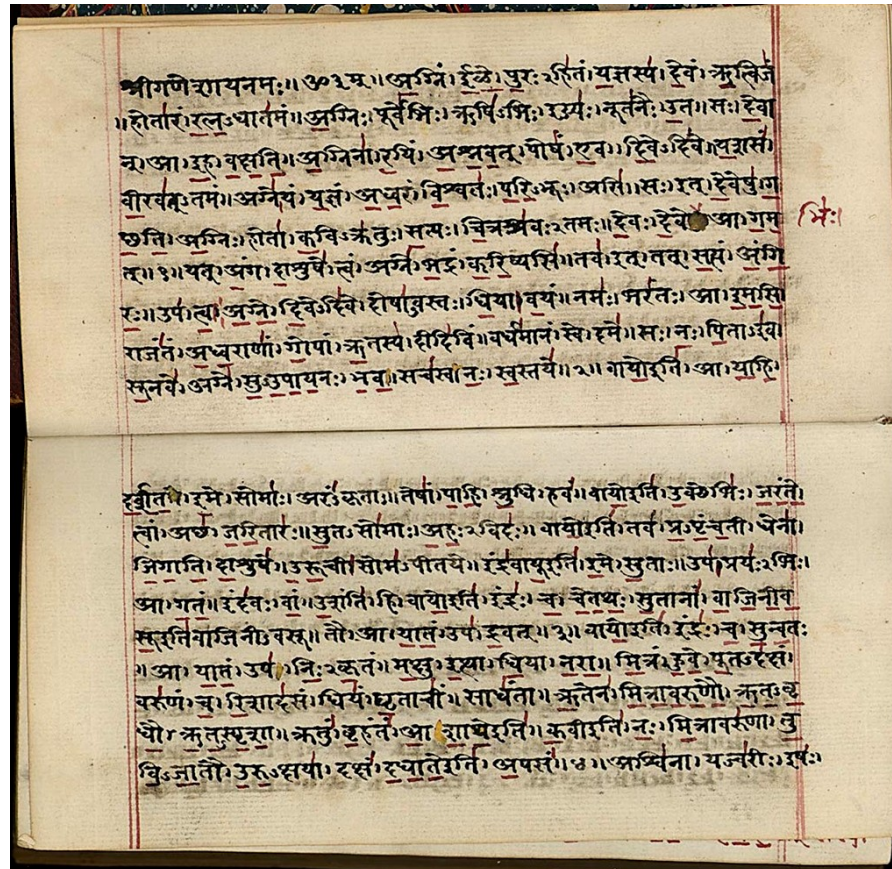 श्रीगणेशायनमः॥ॐ३म्॥अ॒ग्निं। ई॒ळे॒। पु॒रःऽहि॑तं। य॒ज्ञस्य॑। दे॒वं। ऋ॒त्विजं॑
॥होता॑रं। र॒त्न॒ऽधात॑मं॥अ॒ग्निः। पूर्वे॑भिः। ऋषि॑ऽभिः। ईड्यः॑। नूत॑नैः। उ॒त॥सः। दे॒वा
न्। आ। इ॒ह। व॒क्ष॒ति॒॥अ॒ग्निना॑। र॒यिं। अ॒श्न॒व॒त्। पोषं॑। ए॒व। दि॒वेऽदि॑वे॥य॒शसं॑
वी॒रव॑त्ऽतमं॥अग्ने॒यं। य॒ज्ञं। अ॒ध्व॒रं। वि॒श्वतः॑। प॒रि॒ऽभूः। असि॑॥सः। इत्। दे॒वेषु॑। ग॒
च्छ॒ति॒। अ॒ग्निः। होता॑। क॒विऽक्र॑तुः। स॒त्यः। चि॒त्रश्र॑वःऽतमः॥दे॒वः। दे॒वे आ। ग॒म॒ भिः॑।
त्॥१॥यत्। अं॒ग। दा॒शुषे॑। त्वं। अग्ने॑। भ॒द्रं। क॒रि॒ष्यसि॑॥तव॑। इत्। तत्। स॒त्यं। अं॒गि॒
रः॒॥उप॑। त्वा॒। अ॒ग्ने॒। दि॒वेऽदि॑वे। दोषा॑ऽवस्तः। धि॒या। व॒यं॥नमः॑। भरं॑तः। आ। इ॒म॒सि॒
राजं॑तं। अ॒ध्व॒राणां॑। गो॒पां। ऋ॒तस्य॑। दीदि॑विं॥वर्ध॑मानं। स्वे। दमे॑॥सः। नः॒। पि॒ताऽइ॑व।
सू॒नवे॑। अग्ने॑। सु॒ऽउ॒पा॒य॒नः। भ॒व॒॥सच॑स्व। नः॒। स्व॒स्तये॑॥२॥वायो॒इति॑। आ। या॒हि॒
द॒र्श॒त॒। इ॒मे। सोमाः॑। अरं॑ऽकृताः॥तेषां॑। पा॒हि॒। श्रु॒धि। हवं॑॥वायो॒इति॑। उ॒क्थेभिः॑। ज॒रं॒ते॒
त्वां। अच्छ॑। ज॒रि॒तारः॑॥सु॒तऽसो॑माः। अ॒हः॒ऽविदः॑॥वायो॒इति॑। तव॑। प्र॒ऽपृं॒च॒ती। धेना॑।
जि॒गा॒ति॒। दा॒शुषे॑॥उ॒रू॒ची। सोम॑ऽपीतये॥इंद्र॑वायू॒इति॑। इ॒मे। सु॒ताः॥उप॑। प्रयः॑ऽभिः।
आ। ग॒तं॥इंद॑वः। वां॒। उ॒शंति॑। हि॥वायो॒इति॑। इंद्रः॑। च॒। चे॒त॒थः॒। सु॒तानां॑। वा॒जि॒नी॒व॒
सू॒इति॑वाजिनीऽवसू॥तौ। आ। या॒तं॒। उप॑। द्र॒वत्॥३॥वायो॒इति॑। इंद्रः॑। च॒। सु॒न्व॒तः
॥आ। या॒तं॒। उप॑। निः॒ऽकृ॒तं॥म॒क्षु। इ॒त्था। धि॒या। न॒रा॒॥मि॒त्रं। हु॒वे॒। पू॒तऽद॑क्षं।
वरु॑णं। च॒। रि॒शाद॑सं॥धियं॑। घृ॒ताचीं॑। साधं॑ता॥ऋ॒तेन॑। मि॒त्रा॒व॒रु॒णौ॒। ऋ॒त॒ऽवृ॒
धौ॒। ऋ॒त॒ऽस्पृ॒शा॒॥क्रतुं॑। बृ॒हंतं॑। आ॒शा॒थे॒इति॑॥क॒वीइति॑। नः॒। मि॒त्रावरु॑णा। तु॒
वि॒ऽजा॒तौ। उ॒रु॒ऽक्षया॑॥दक्षं॑। द॒धा॒ते॒इति॑। अ॒पसं॑॥४॥अश्वि॑ना। यज्व॑रीः। इषः॑।